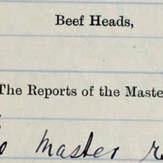 Beef Heads,
The Reports of the Maste
Master